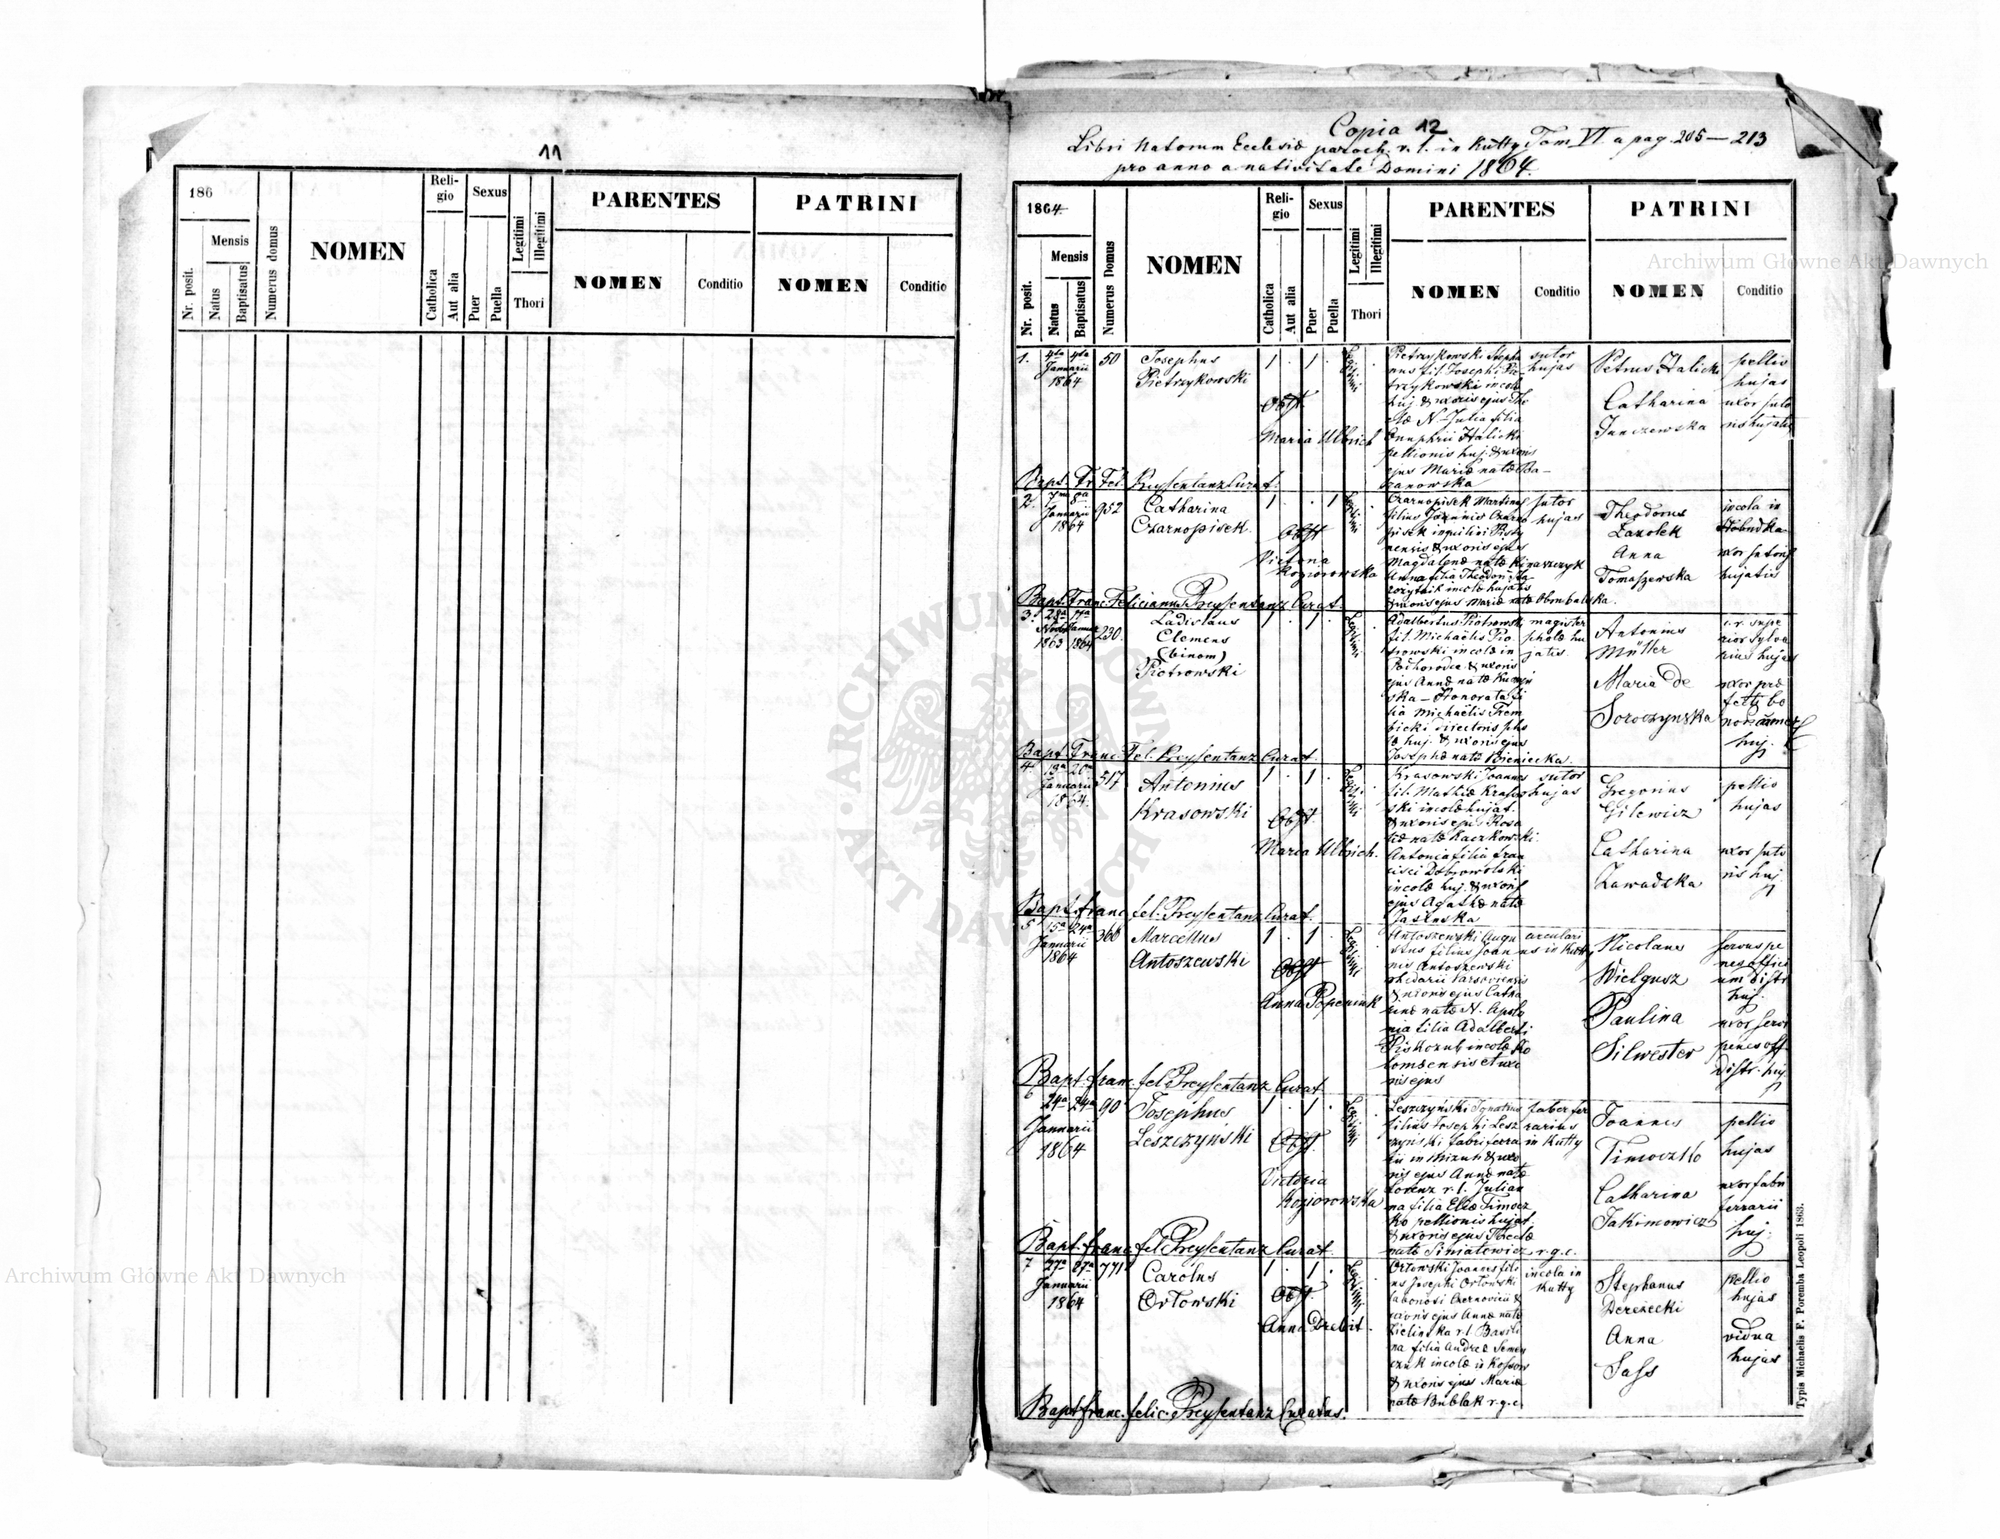 11
186
Mensis
Nr. posit.
Natus
Baptisatus
Numerus domus
NOMEN
Reli-
gio
Catholica
Aut alia
Sexus
Puer
Puella
Legitimi
Illegitimi
Thori
PARENTES
NOMEN
Conditio
PATRINI
NOMEN
Conditio
Copia 12
Libri Natorum Ecclesiæ paroch. r. l. in Kutty Tom VI a pag. 205 — 213
pro anno a nativitate Domini 1864.
1864.
Mensis
Nr. posit.
Natus
Baptisatus
Numerus Domus
NOMEN
Reli-
gio
Catholica
Aut alia
Sexus
Puer
Puella
Legitimi
Illegitimi
Thori
PARENTES
NOMEN
Conditio
PATRINI
NOMEN
Conditio
1. 4ta 4ta 50
Januarii
1864
Josephus
Pietrzykowski
1 . 1 .
Obst.
Maria Ulbrich
Legitimi
Pietrzykowski Stepha
nus fil. Josephi Pie-
trzykowski incolæ
huj. & uxoris ejus The
clæ N. Julia filia
Onuphrii Halicki
pellionis huj. & uxoris
ejus Mariæ natæ Ba-
ranowska
sutor
hujas
Petrus Halicki
Catharina
Janczewska
pellio
hujas
uxor suto
ris hujatis
Bapt. Fr. Fel. Preysentanz Curat.
2. 7ma 8va 952
Januarii
1864
Catharina
Czarnopisek.
1 . . 1
Obst
Victoria
Koziorowska
Legitimi
Czarnopisek Martinus
filius Joannis Czarno
pisek inquilini Pisty
nensis & uxoris ejus
Magdalenæ natæ Kinaszczyk
Anna filia Theodori
incolæ hujatis
& uxoris ejus Mariæ natæ Obmbalska.
sutor
hujas
Theodorus
Lazolek
Anna
Tomaszewska
incola in
Słobudka
uxor sutoris
hujatis
Bapt. Franc. Felicianus Preysentanz Curat.
3. 23a 17a 230.
Novbr Januar
1863 1864
Ladislaus
Clemens
(binom)
Piotrowski
1 . 1 .
Legitimi
Adalbertus Piotrowski
fil. Michaëlis Pio-
trowski incolæ in
Podhorodce & uxoris
ejus Annæ natæ
ska — Honorata fi
lia Michaëlis Trem
bicki directoris scho
læ huj. & uxoris ejus
Josephæ natæ Bieniecka.
magister
scholæ hu
jatis.
Antonius
Müller
Maria de
Soroczynska
c. r. supe
rior sylva
rius hujas
uxor præ
fecti bo
norum camer.
huj.
Bapt. Franc. Fel. Preysentanz Curat.
4. 19a 20a 517
Januarii
1864.
Antonius
Krasowski
1 . 1 .
Obst
Maria Ulbrich.
Legitimi
Krasowski Joannes
fil. Mathiæ Krasow
ski incolæ hujat.
& uxoris ejus Rosa
liæ natæ Kaczkowski.
Antonia filia Fran
cisci Dobrowolski
incolæ huj. & uxoris
ejus Agathæ natæ
Jasinska
sutor
hujas
Gregorius
Gilewicz
Catharina
Zawadska
pellio
hujas
uxor suto
ris huj.
Bapt. Franc. fel. Preysentanz Curat.
5 15a 24a 366
Januarii
1864
Marcellus
Antoszewski
1 . 1 .
Obst
Anna Popeniuk
Legitimi
Antoszewski Augu
stus filius Joan
nis Antoszewski
rhedarii Varsoviensis
& uxoris ejus Catha
rinæ natæ N. Apollo
nia filia Adalberti
Piskozub incolæ Ko
lomeensis et uxo
ris ejus
circulari
us in Kutty
Nicolaus
Wielgusz
Paulina
Silwester
servus pe
nes offici
um distr.
huj.
uxor servi
penes off
distr. huj
Bapt. franc. fel Preysentanz Curat.
6 24a 24a 90
Januarii
1864
Josephus
Leszczyński
1 . 1 .
Obst.
Victoria
Koziorowska
Legitimi
Leszczyński Ignatius
filius Josephi Lesz
czyński fabri ferra
rii in Rizub & uxo
ris ejus Annæ natæ
Lorenz r. l. Julian
na filia Eliæ Timocz
ko pellionis hujat.
& uxoris ejus Theclæ
natæ Siniatowicz r. g. c.
faber fer
rarius
in Kutty
Joannes
Timoczko
Catharina
Jakimowicz
pellio
hujas
uxor fabri
ferrarii
huj.
Bapt. franc. fel. Preysentanz Curat.
7 27a 27a 771
Januarii
1864
Carolus
Orłowski
1 . 1 .
Obst.
Anna Drebit.
Legitimi
Orłowski Joannes fili
us Josephi Orłowski
laboriosi Czernovicii &
uxoris ejus Annæ natæ
Zielinska r. l. Basili
na filia Andreæ Semen
czuk incolæ in Kossow
& uxoris ejus Mariæ
natæ Bublak r. g. c.
incola in
Kutty
Stephanus
Derezecki
Anna
Sass
pellio
hujas
vidua
hujas
Bapt franc. felic. Preysentanz Curatus.
Typis Michaelis F. Poremba Leopoli 1863.
Archiwum Główne Akt Dawnych
Archiwum Główne Akt Dawnych
ARCHIWUM GŁÓWNE AKT DAWNYCH